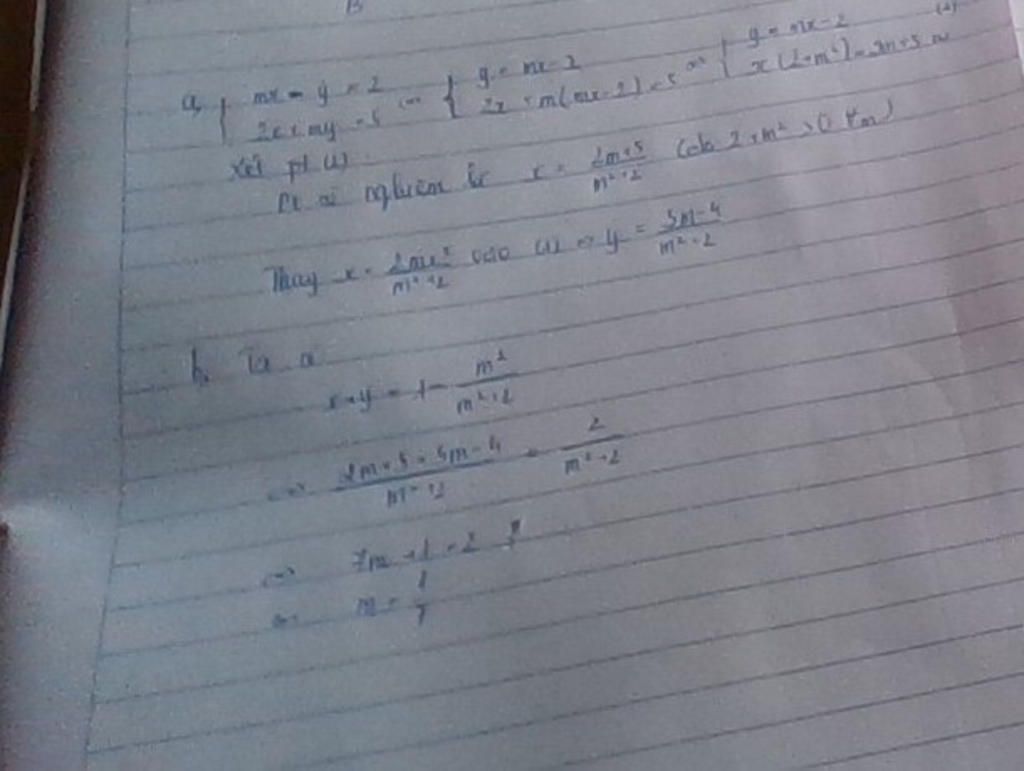 a, { mx - y = 2 2x + my = 5 <=> { y = mx - 2 2x + m(mx - 2) = 5 <=> { y = mx - 2 x(2 + m²) = 2m + 5
Xét pt (1)
x = 2m+5 / m²+2 (do 2 + m² > 0 ∀m)
Thay x = 2m+5 / m²+2 vào (1) => y = 5m-4 / m²+2
b, Ta có
x + y = 1 - m² / m²+2
<=> 2m + 5 + 5m - 4 / m²+2 = 2 / m²+2
<=> 7m + 1 = 2
<=> m = 1 / 7